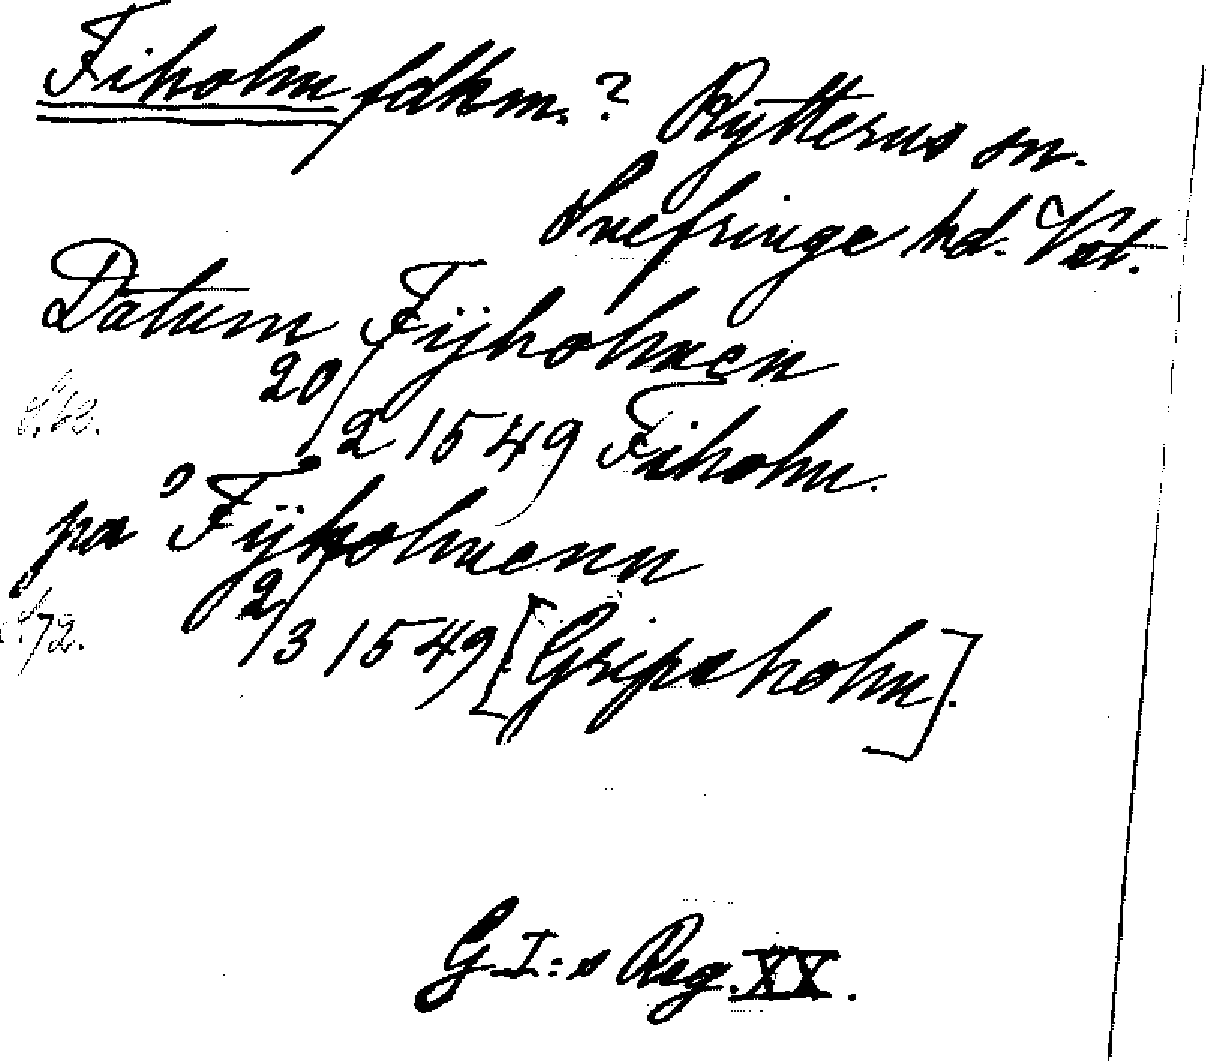 Fiholm fdkm.? Rytterns sn.
Snefringe hd. Vst.
Datum Fijholmen
20/2 1549 Fiholm.
S. 63.
på Fijholmenn
2/3 1549 [Gripsholm].
S. 72.
G I:s Reg. XX.